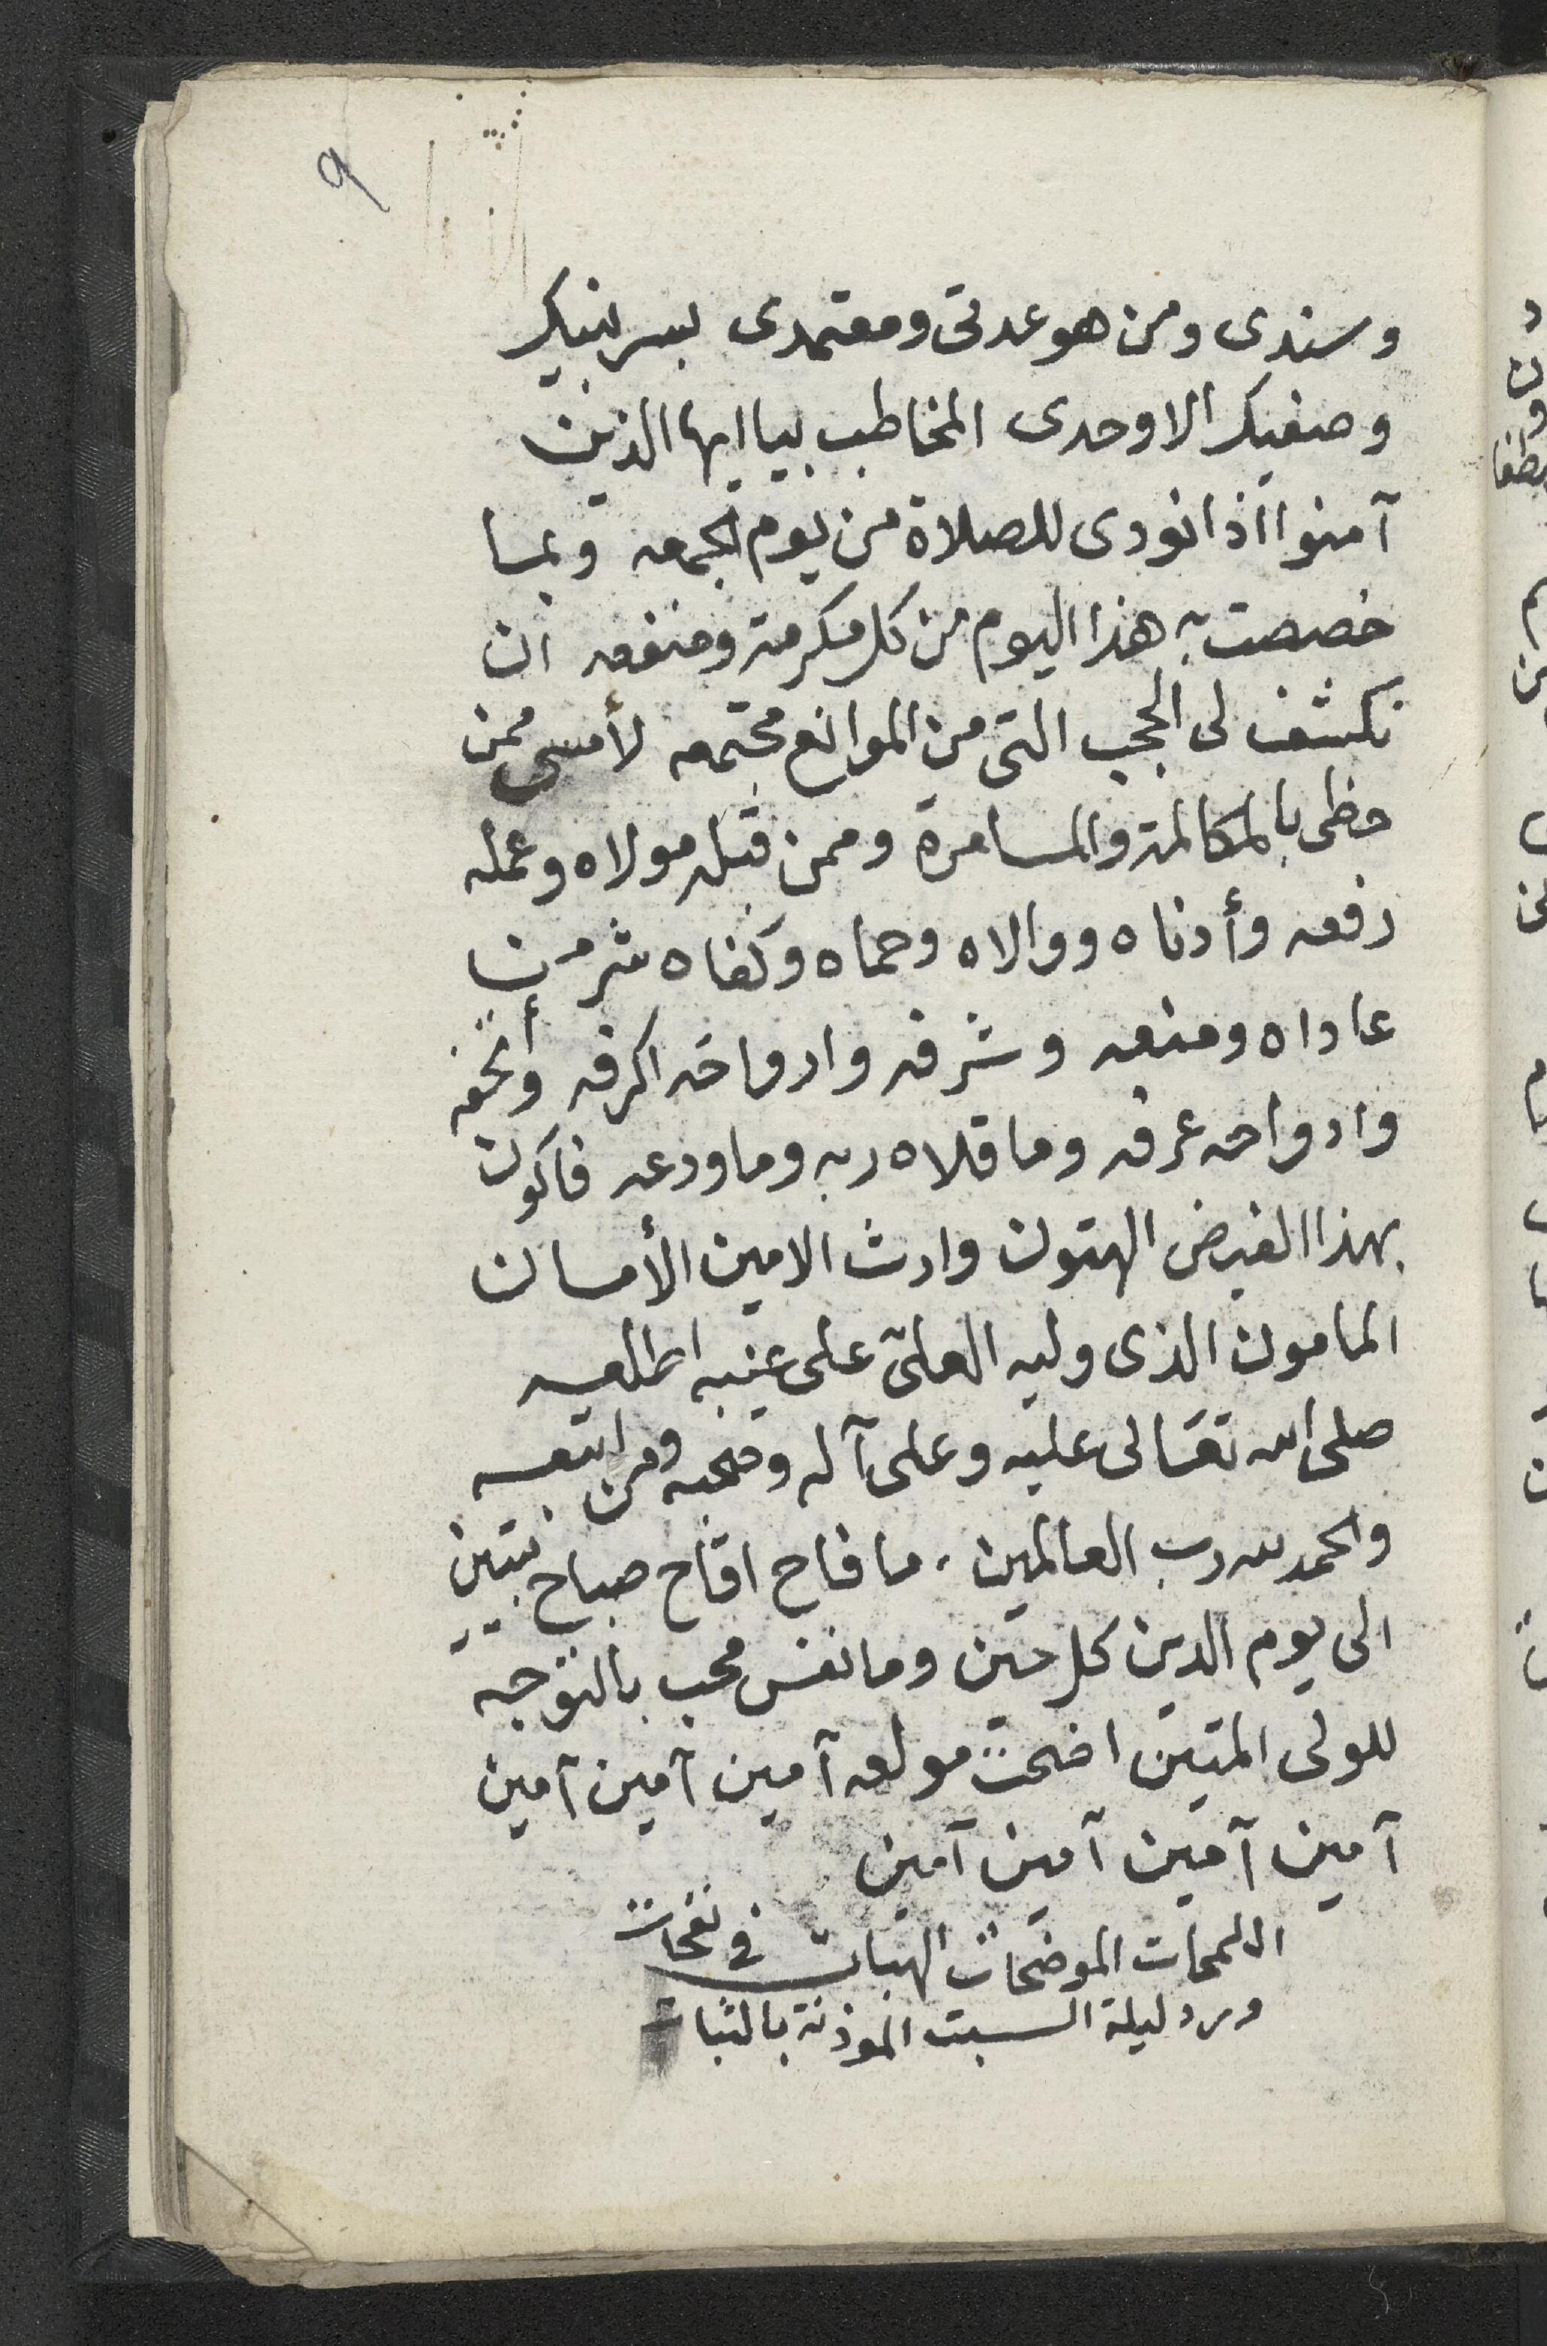 ٩
وسندى ومن هو عدتى ومعتمدى بسر نبيك
وصفيك الاوحدى المخاطب بيا ايها الذين
آمنوا اذا نودى للصلاة من يوم الجمعه وبما
خصصت به هذا اليوم من كل مكرمة ومنفعه ان
تكشف لى الحجب التى من الموانع مجتمعه لأمسى ممن
حظى بالمكالمة والمسامرة وممن قبله مولاه وعمله
رفعه وأدناه ووالاه وحماه وكفاه شر من
عاداه ومنعه وشرفه وارواحه اكرفه وأتحفه
وادواحه عرفه وما قلاه ربه وما ودعه فاكون
بهذا الفيض الهتون وارث الامين الأمان
المامون الذى وليه العلىّ على غيبه اطلعه
صلى الله تعالى عليه وعلى آله وصحبه ومن اتبعه
والحمد لله رب العالمين، ما فاح اقاح صباح نيتين
الى يوم الدين كل حين وما نفس محب بالتوجه
للولى المتين اضحت مولعه آمين آمين آمين
آمين آمين آمين آمين
اللمحات الموضحات الهبات فى نفحات
ورد ليلة السبت الموذنة بالثبات